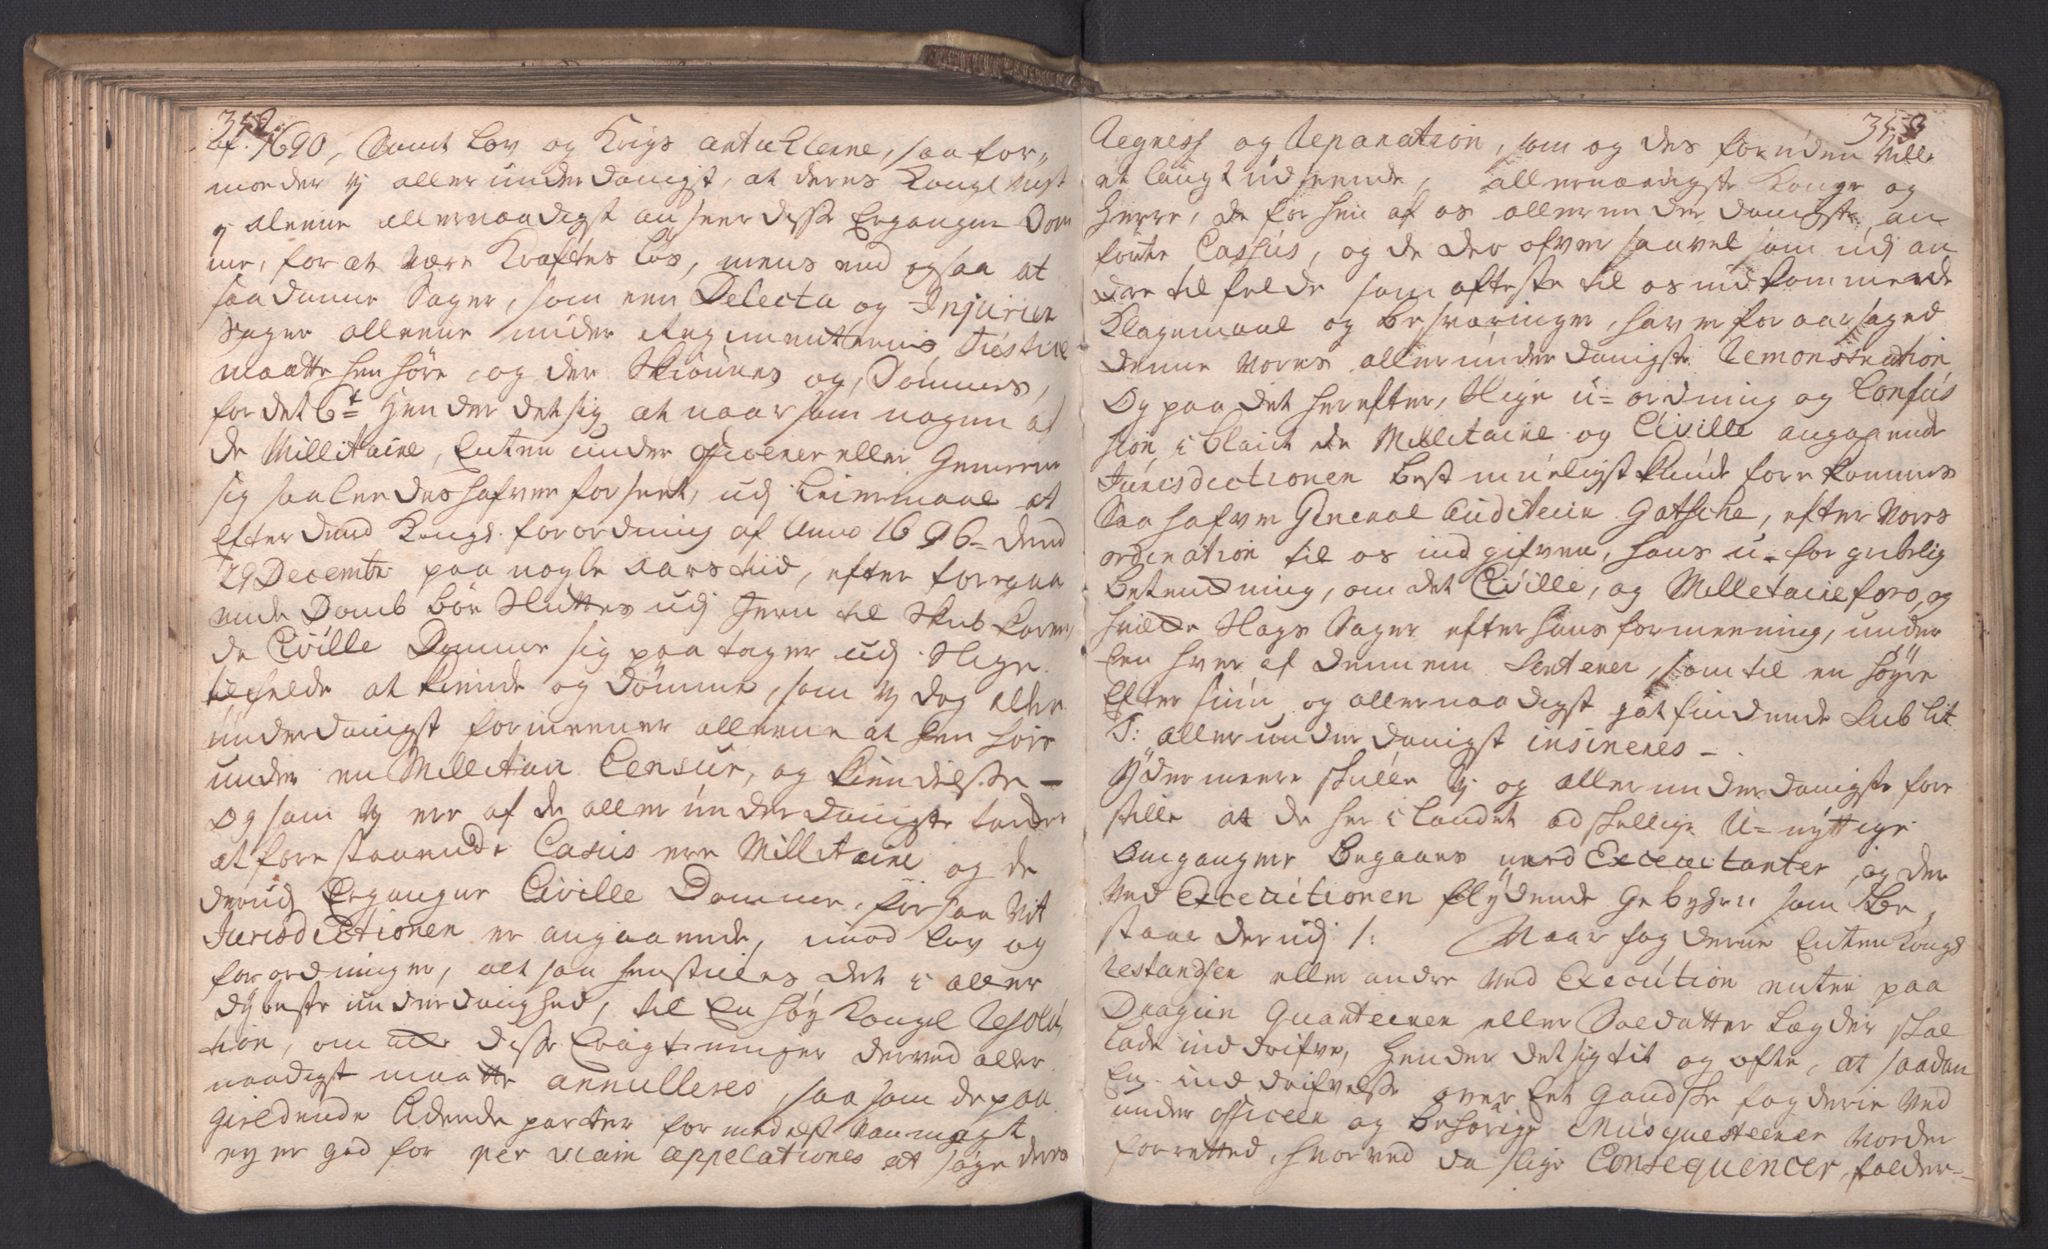 352.
af. 1690, Samt Lov og Krigs articklerne, saa for„
moeder vj allerunderdanigst, at deres Kongl Mayst
ej aleene allernaadigst anseer disse Ergangne Dom
me, for at være Kraftes løs, mens end ogsaa at
saadanne Sager, som een Delecta og Injurier
Sager alleene under Regimentternis Justice
maatte henhøre, og der Skiønnes og Dømmes,
for det 6te Hender det sig at naar som nogen af
de Millitaire, Enten under officerer eller Gemeene
sig saaledes hafver forseet, udj Leiermaal at
Efter dend Kongl. forordning af Anno 1696 dend
29 Decembr paa nogle Aars tiid, efter foregaa
ende Domb bør sluttes udj Jern til Skubkarren,
de Civille Domme sig paatager udj slige
tilfelde at kiende og Dømme, som vj dog aller
underdanigst formeener alleene at hen høre
under en Millitair Censur, og kiendelse –
Og som vj ere af de aller underdanigste tancker
at forestaaende Casus ere Millitaire og de
derudj Ergangne Civille Domme, for saa vit
Jurisdictionen er angaaende, imod Lov og
forordninger, alt saa henstilles det i aller
dybeste underdanighed, til En høy Kongl Resolu
tion, om disse Eragtninger derved aller
naadigst maatte annulleres, saa som de paa
gieldende Lidende parter formedelst Vanmagt
ej er god for per viam appelationes at søge deres
353
Regress og Reparation, som og des foruden ville
et langt udseende, allernaadigste Konge og
Herre, de forhen af os allerunderdanigste an
førte Cassus, og de der ofver saavel som udj an
dre tilfelde som ofteste til os indkommende
Klagemaal og besværinger, haver foraarsaged
denne vores allerunderdanigste Remonstration,
Og paa det herefter, slige u-ordning og Confus
sion, iblant de Millitaire og Civille angaaende
Jurisdictionen best mueligst kunde forekommes
Saa hafver General Auditeur Gatsche, efter vores
ordination til os indgifven, hans u-forgribelig
betenckning, om det Civille, og Milletaire foro, og
hvilcke Slags Sager efter hans formeening, under
een hver af dennem Sorterer, som til en høyre
Eftersiun og allernaadigst gotfindende Sub lit
T: allerunderdanigst insineres –
Ydermeere skulle vj og allerunderdanigste fore
stille at de her i Landet adskellige U-nyttige
omgangner begaaes med Executanter, og der
ved Executionen flydende gebyher som be„
staar derudj 1: Naar fogderne Enten Kongl
restandser eller andre ved Execution enten paa
Dragun Quarterer eller Soldatter Lægder skal
lade inddrifve, Hender det sig tit og ofte, at saadan
En inddrifvelse over Eet gandske fogderie ved
under officeer og behørige Musquetterer vorder
forretted, hvorved da slige Consequencer, falder–